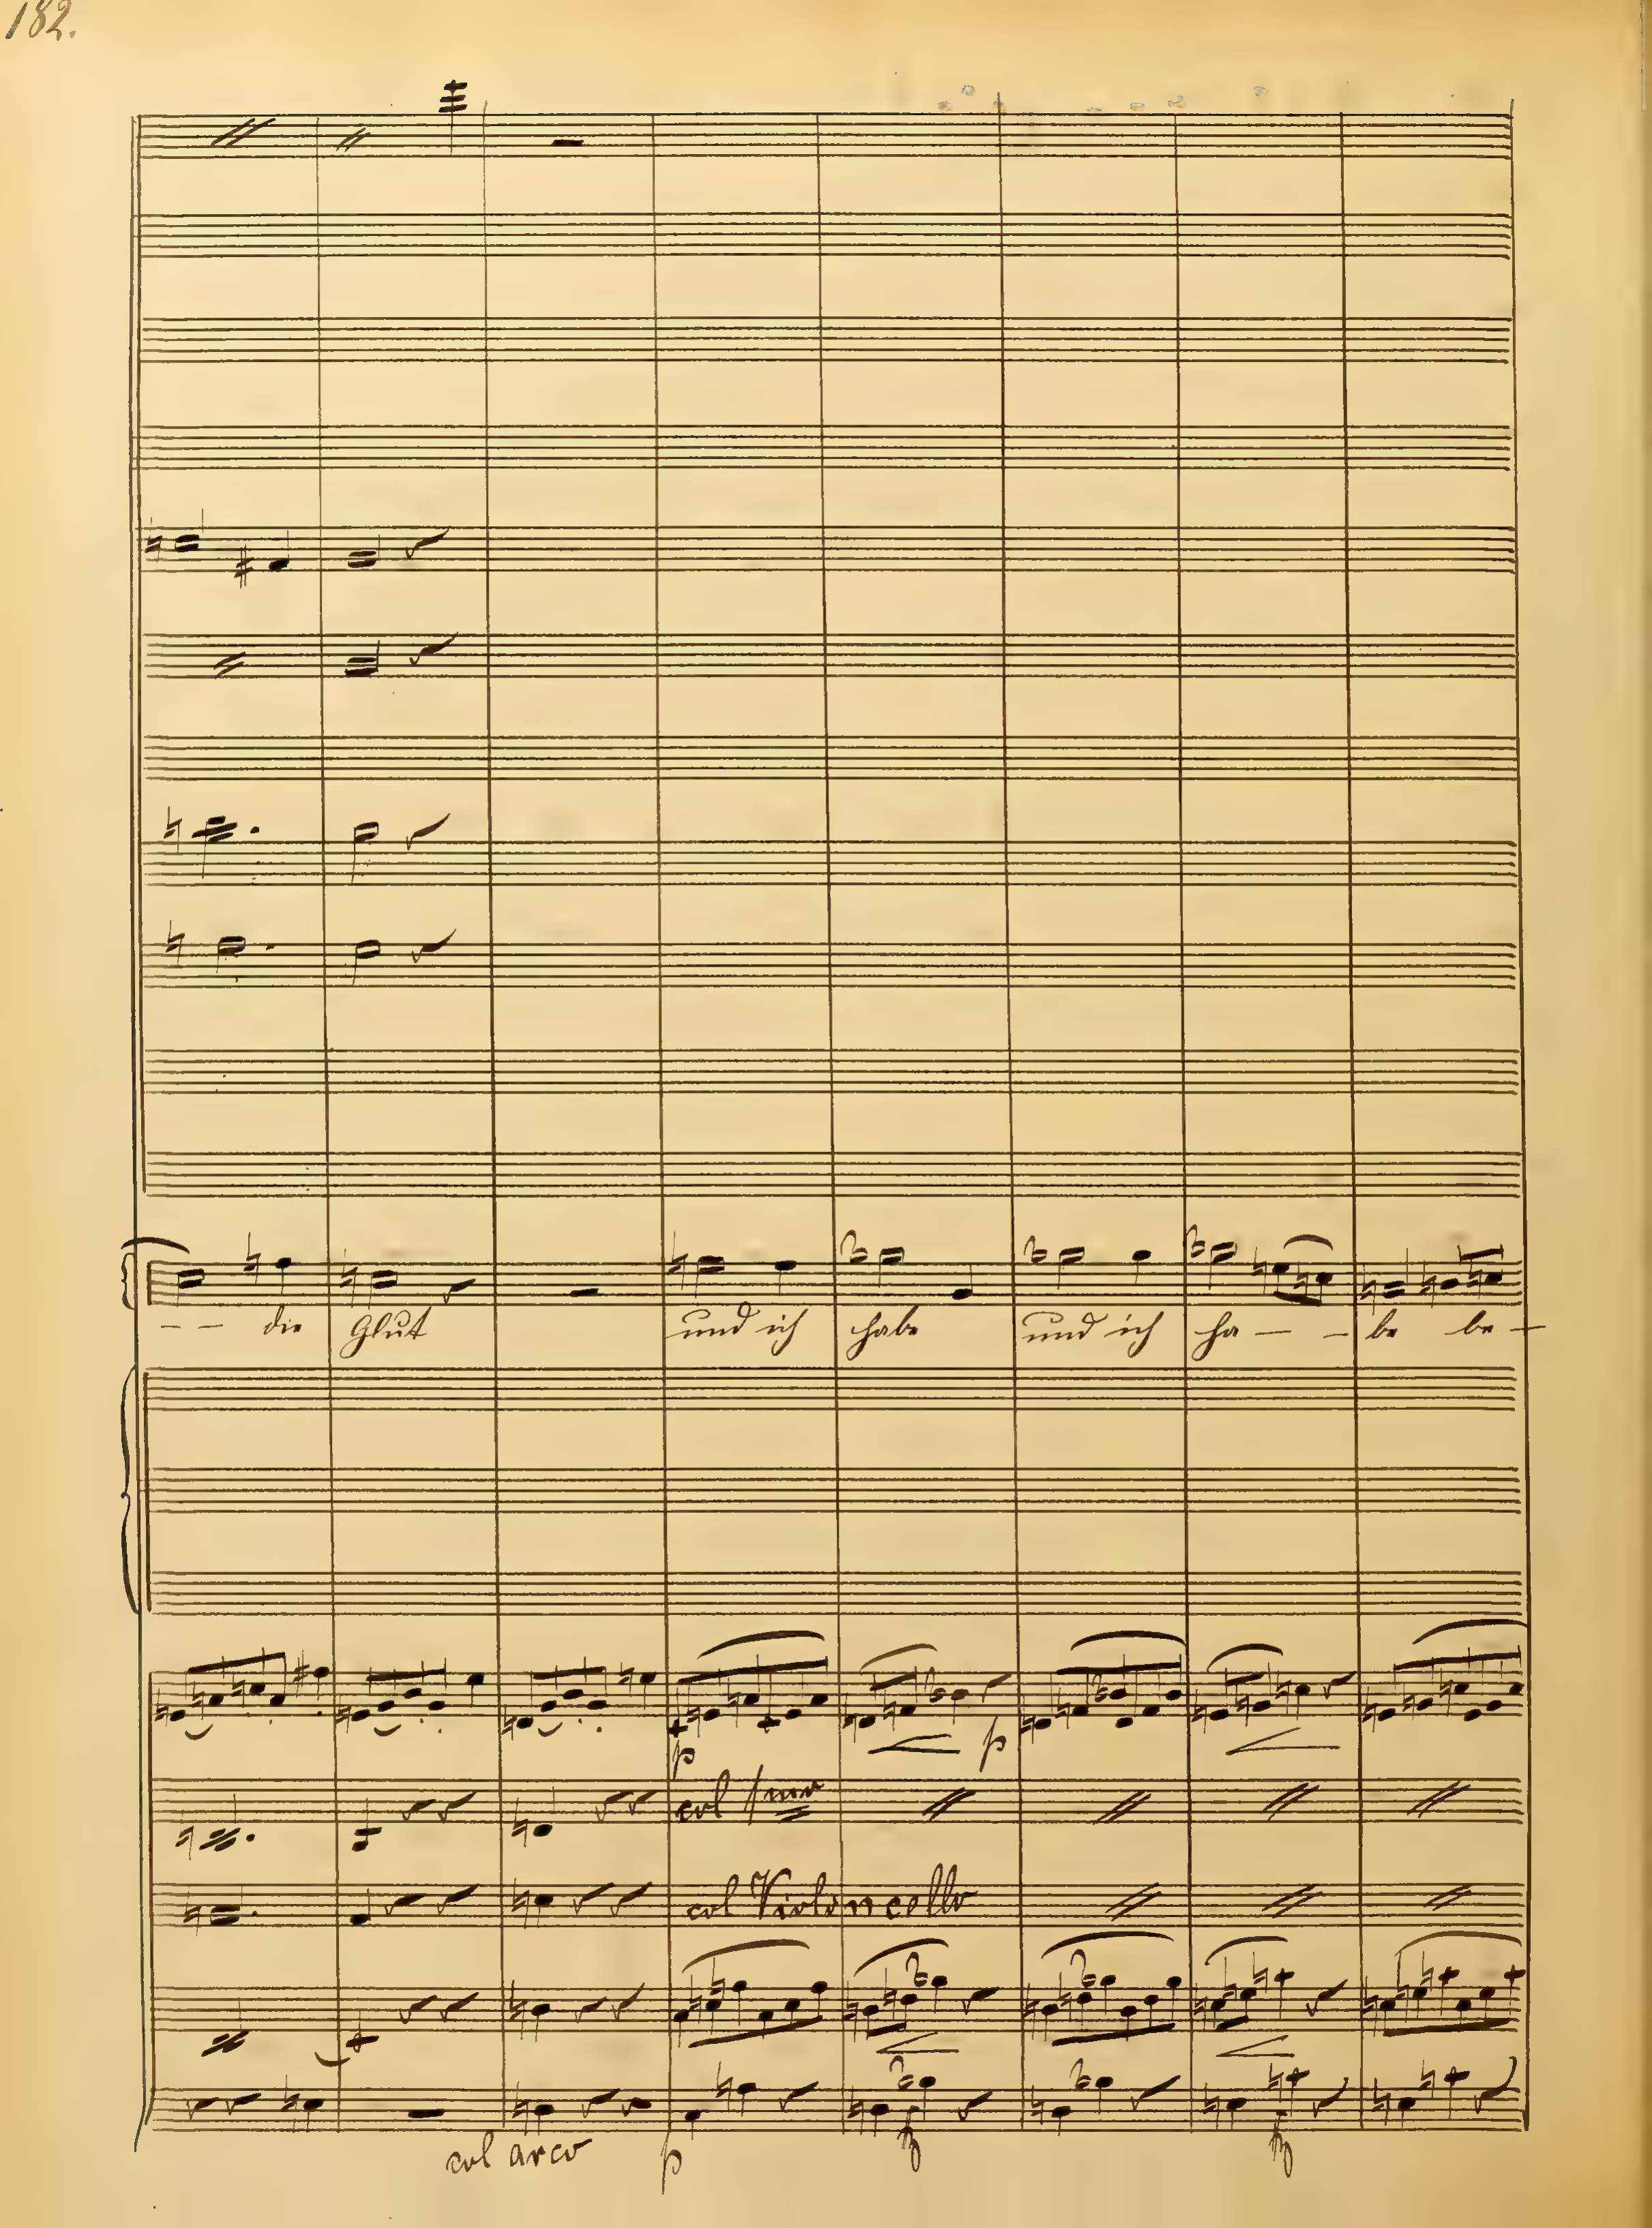 182.
– – die Glut und ich habe und ich ha – – be be –
p p
col 1mo
col Violoncello
col arco p fp fp